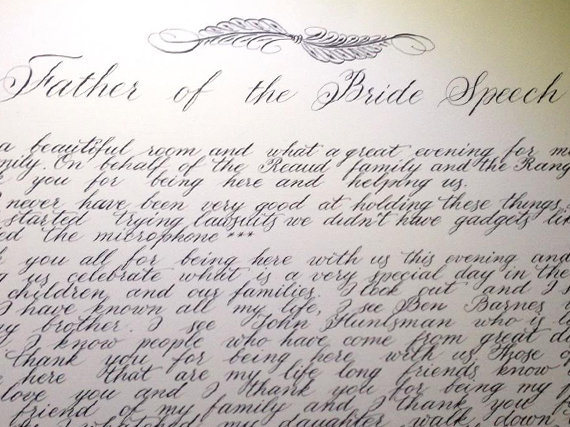 Father of the Bride Speech
a beautiful room and what a great evening for m
mily. On behalf of the Reaud family and the Rang
you for being here and helping us.
never have been very good at holding these things
started trying lawsuits we didn't have gadgets lik
ed the microphone ***
k you all for being here with us this evening and
g us celebrate what is a very special day in the
children and our families. I look out and I s
I have known all my life, I see Ben Barnes
my brother. I see John Huntsman who is li
I know people who have come from great di
thank you for being here with us. Those o
here that are my life long friends know
love you and I thank you for being my f
friend of my family and I thank you
I watched my daughter walk down